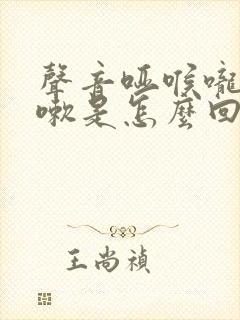 聲音啞喉嚨
嗽是怎麼回
王尚禎